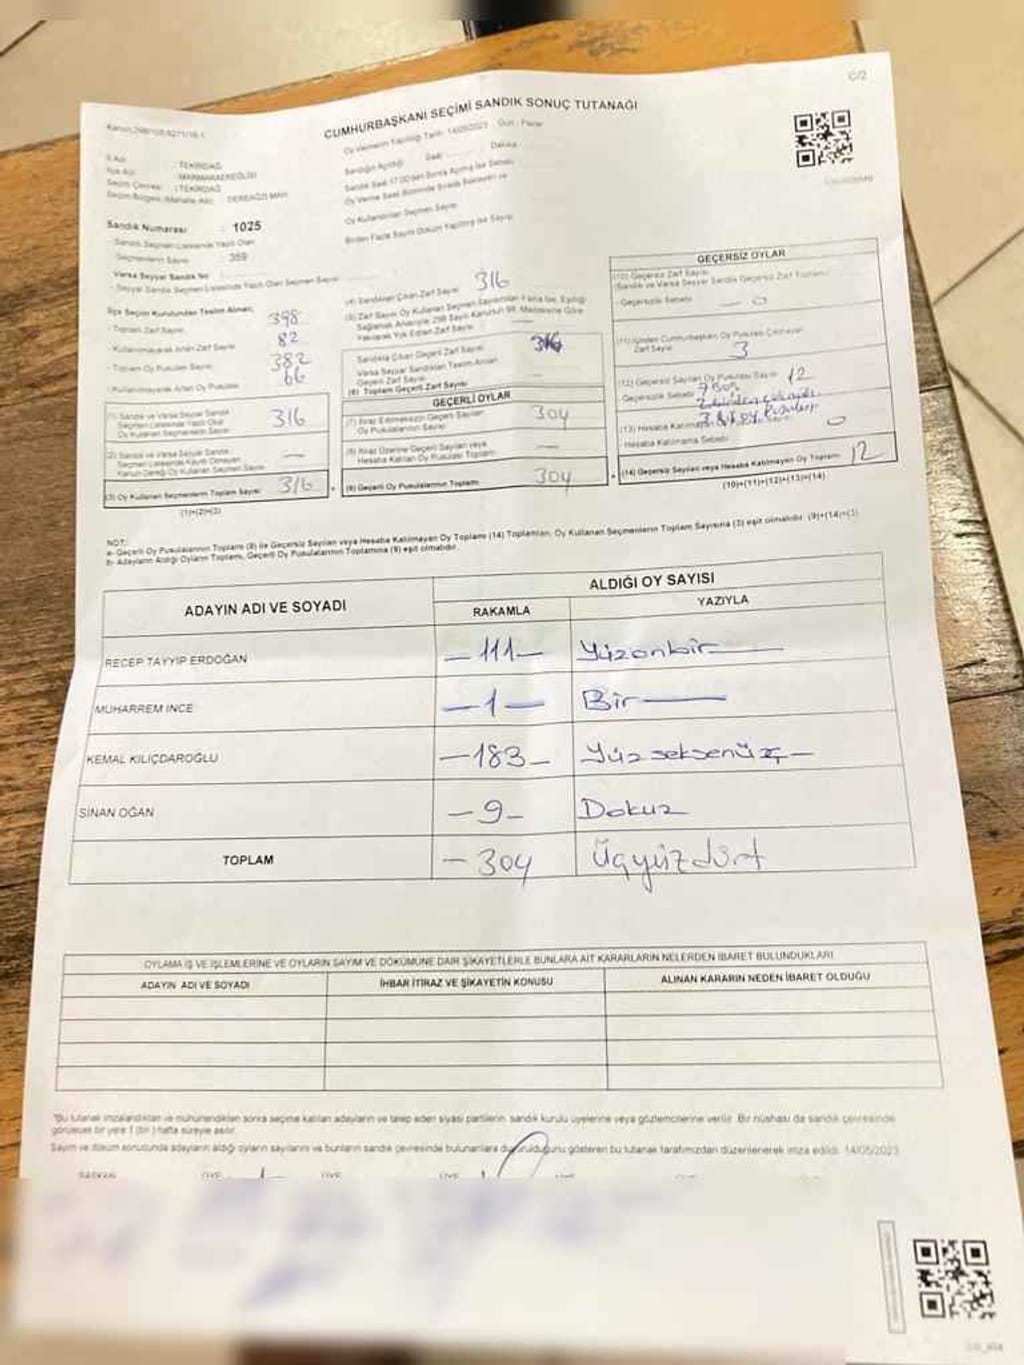 C/2
CUMHURBAŞKANI SEÇİMİ SANDIK SONUÇ TUTANAĞI
Oy Vermenin Yapıldığı Tarih: 14/05/2023 Gün: Pazar
İl Adı : TEKİRDAĞ
İlçe Adı : MARMARAEREĞLİSİ
Seçim Çevresi : TEKİRDAĞ
Seçim Bölgesi (Mahalle Adı) : DEREAĞZI MAH.
Sandığın Açıldığı Saat Dakika
Sandık Numarası : 1025
Sandık Seçmen Listesinde Yazılı Olan
Seçmenlerin Sayısı : 359
Varsa Seyyar Sandık No
Seyyar Sandık Seçmen Listesinde Yazılı Olan Seçmen Sayısı
Oy Kullanılan Seçmen Sayısı
Birden Fazla Sayım Döküm Yapılmış İse Sayısı
İlçe Seçim Kurulundan Teslim Alınan;
- Toplam Zarf Sayısı 398
- Kullanılmayarak Artan Zarf Sayısı 82
- Toplam Oy Pusulası Sayısı 382
- Kullanılmayarak Artan Oy Pusulası 66
(1) Sandık ve Varsa Seyyar Sandık
Seçmen Listesinde Yazılı Olup
Oy Kullanan Seçmenlerin Sayısı 316
(2) Sandık ve Varsa Seyyar Sandık
Seçmen Listesinde Kayıtlı Olmayan
Kanun Gereği Oy Kullanan Seçmen Sayısı —
(3) Oy Kullanan Seçmenlerin Toplam Sayısı 316
(1)+(2)=(3)
(4) Sandıktan Çıkan Zarf Sayısı 316
Sandıkta Çıkan Geçerli Zarf Sayısı 316
Varsa Seyyar Sandıktan Teslim Alınan
Geçerli Zarf Sayısı
(6) Toplam Geçerli Zarf Sayısı
GEÇERLİ OYLAR
(7) İtiraz Edilmeksizin Geçerli Sayılan
Oy Pusulalarının Sayısı 304
(8) İtiraz Üzerine Geçerli Sayılan veya
Hesaba Katılan Oy Pusulası Toplamı —
(9) Geçerli Oy Pusulalarının Toplamı 304
GEÇERSİZ OYLAR
(10) Geçersiz Zarf Sayısı
(Sandık ve Varsa Seyyar Sandık Geçersiz Zarf Toplamı)
- Geçersizlik Sebebi — 0
(11) İçinden Cumhurbaşkanı Oy Pusulası Çıkmayan
Zarf Sayısı 3
(12) Geçersiz Sayılan Oy Pusulası Sayısı 12
Geçersizlik Sebebi
(13) Hesaba Katılmayan 0
Hesaba Katılmama Sebebi
(14) Geçersiz Sayılan veya Hesaba Katılmayan Oy Toplamı 12
(10)+(11)+(12)+(13)=(14)
NOT:
a- Geçerli Oy Pusulalarının Toplamı (9) ile Geçersiz Sayılan veya Hesaba Katılmayan Oy Toplamı (14) Toplamları, Oy Kullanan Seçmenlerin Toplam Sayısına (3) eşit olmalıdır. (9)+(14)=(3)
b- Adayların Aldığı Oyların Toplamı, Geçerli Oy Pusulalarının Toplamına (9) eşit olmalıdır.
ADAYIN ADI VE SOYADI
ALDIĞI OY SAYISI
RAKAMLA YAZIYLA
RECEP TAYYİP ERDOĞAN —111— Yüzonbir—
MUHARREM İNCE —1— Bir—
KEMAL KILIÇDAROĞLU —183— Yüzseksenüç—
SİNAN OĞAN —9— Dokuz
TOPLAM —304 Üçyüzdört
OYLAMA İŞ VE İŞLEMLERİNE VE OYLARIN SAYIM VE DÖKÜMÜNE DAİR ŞİKAYETLERLE BUNLARA AİT KARARLARIN NELERDEN İBARET BULUNDUKLARI
ADAYIN ADI VE SOYADI İHBAR İTİRAZ VE ŞİKAYETİN KONUSU ALINAN KARARIN NEDEN İBARET OLDUĞU
*Bu tutanak imzalandıktan ve mühürlendikten sonra seçime katılan adayların ve talep eden siyasi partilerin, sandık kurulu üyelerine veya gözlemcilerine verilir. Bir nüshası da sandık çevresinde
görülecek bir yere 1 (bir) hafta süreyle asılır.
Sayım ve döküm sonucunda adayların aldığı oyların sayılarını ve bunların sandık çevresinde bulunanlara duyurulduğunu gösteren bu tutanak tarafımızdan düzenlenerek imza edildi. 14/05/2023
BAŞKAN ÜYE ÜYE ÜYE ÜYE ÜYE